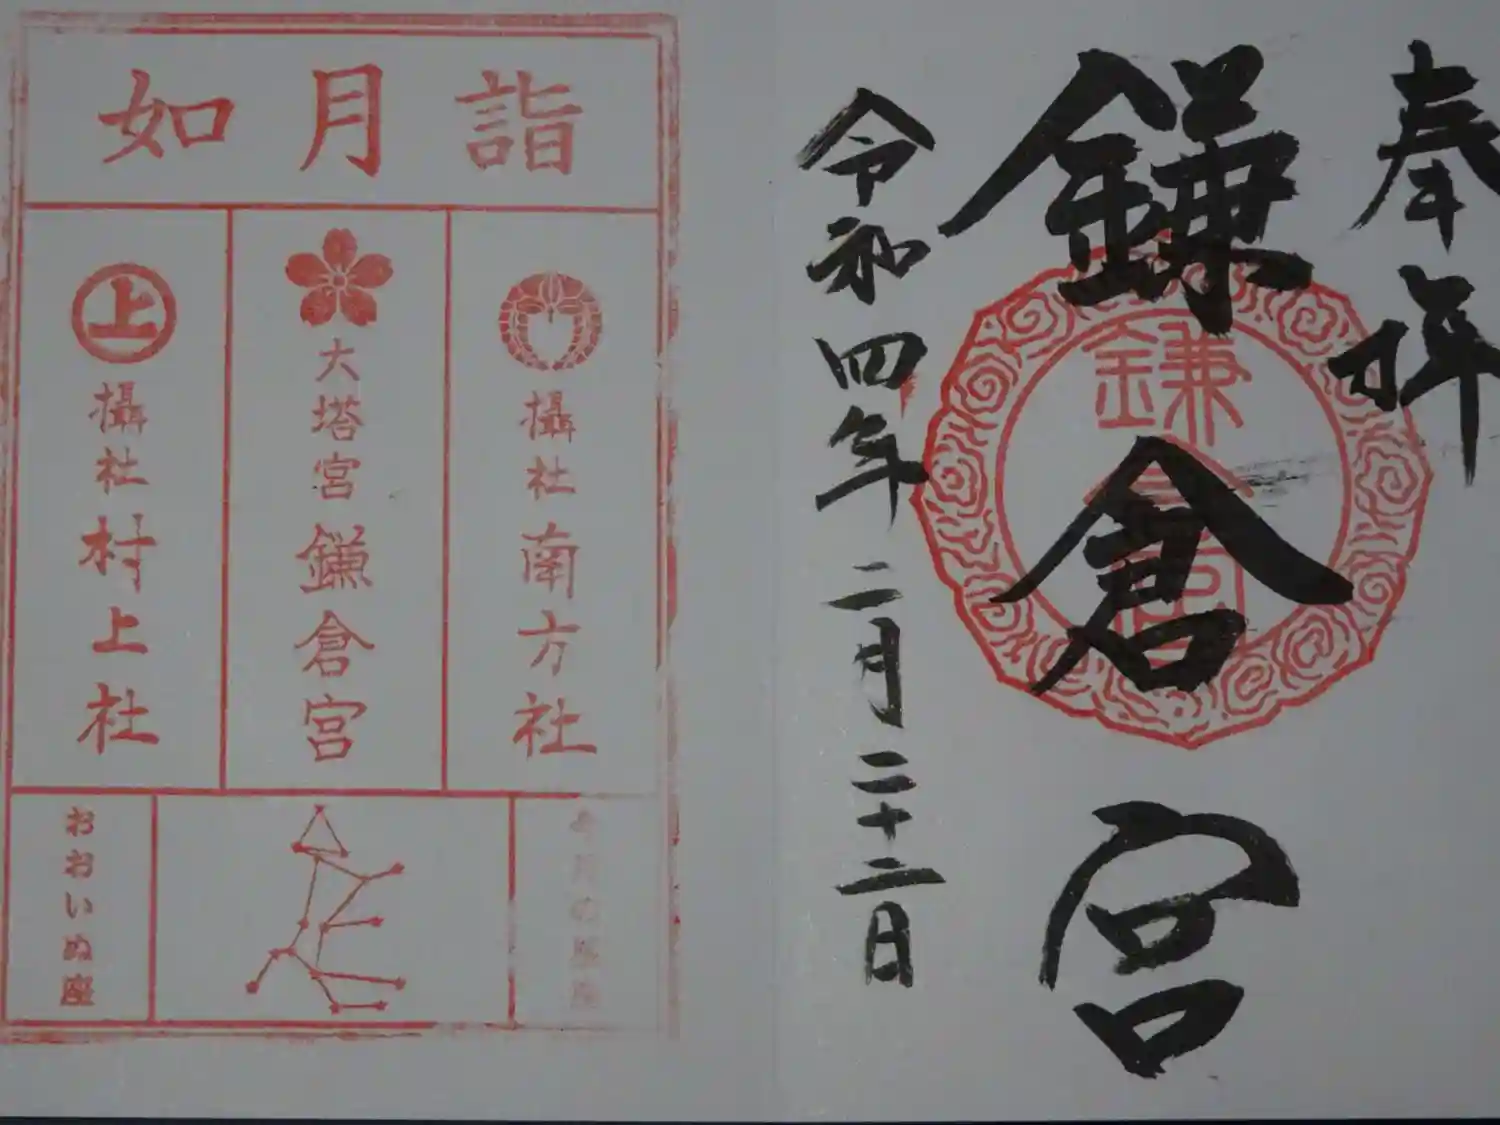 奉拝
鎌倉宮
鎌倉宮
令和四年二月二十二日
如月詣
攝社南方社
大塔宮鎌倉宮
上
攝社村上社
今月の星座
おおいぬ座